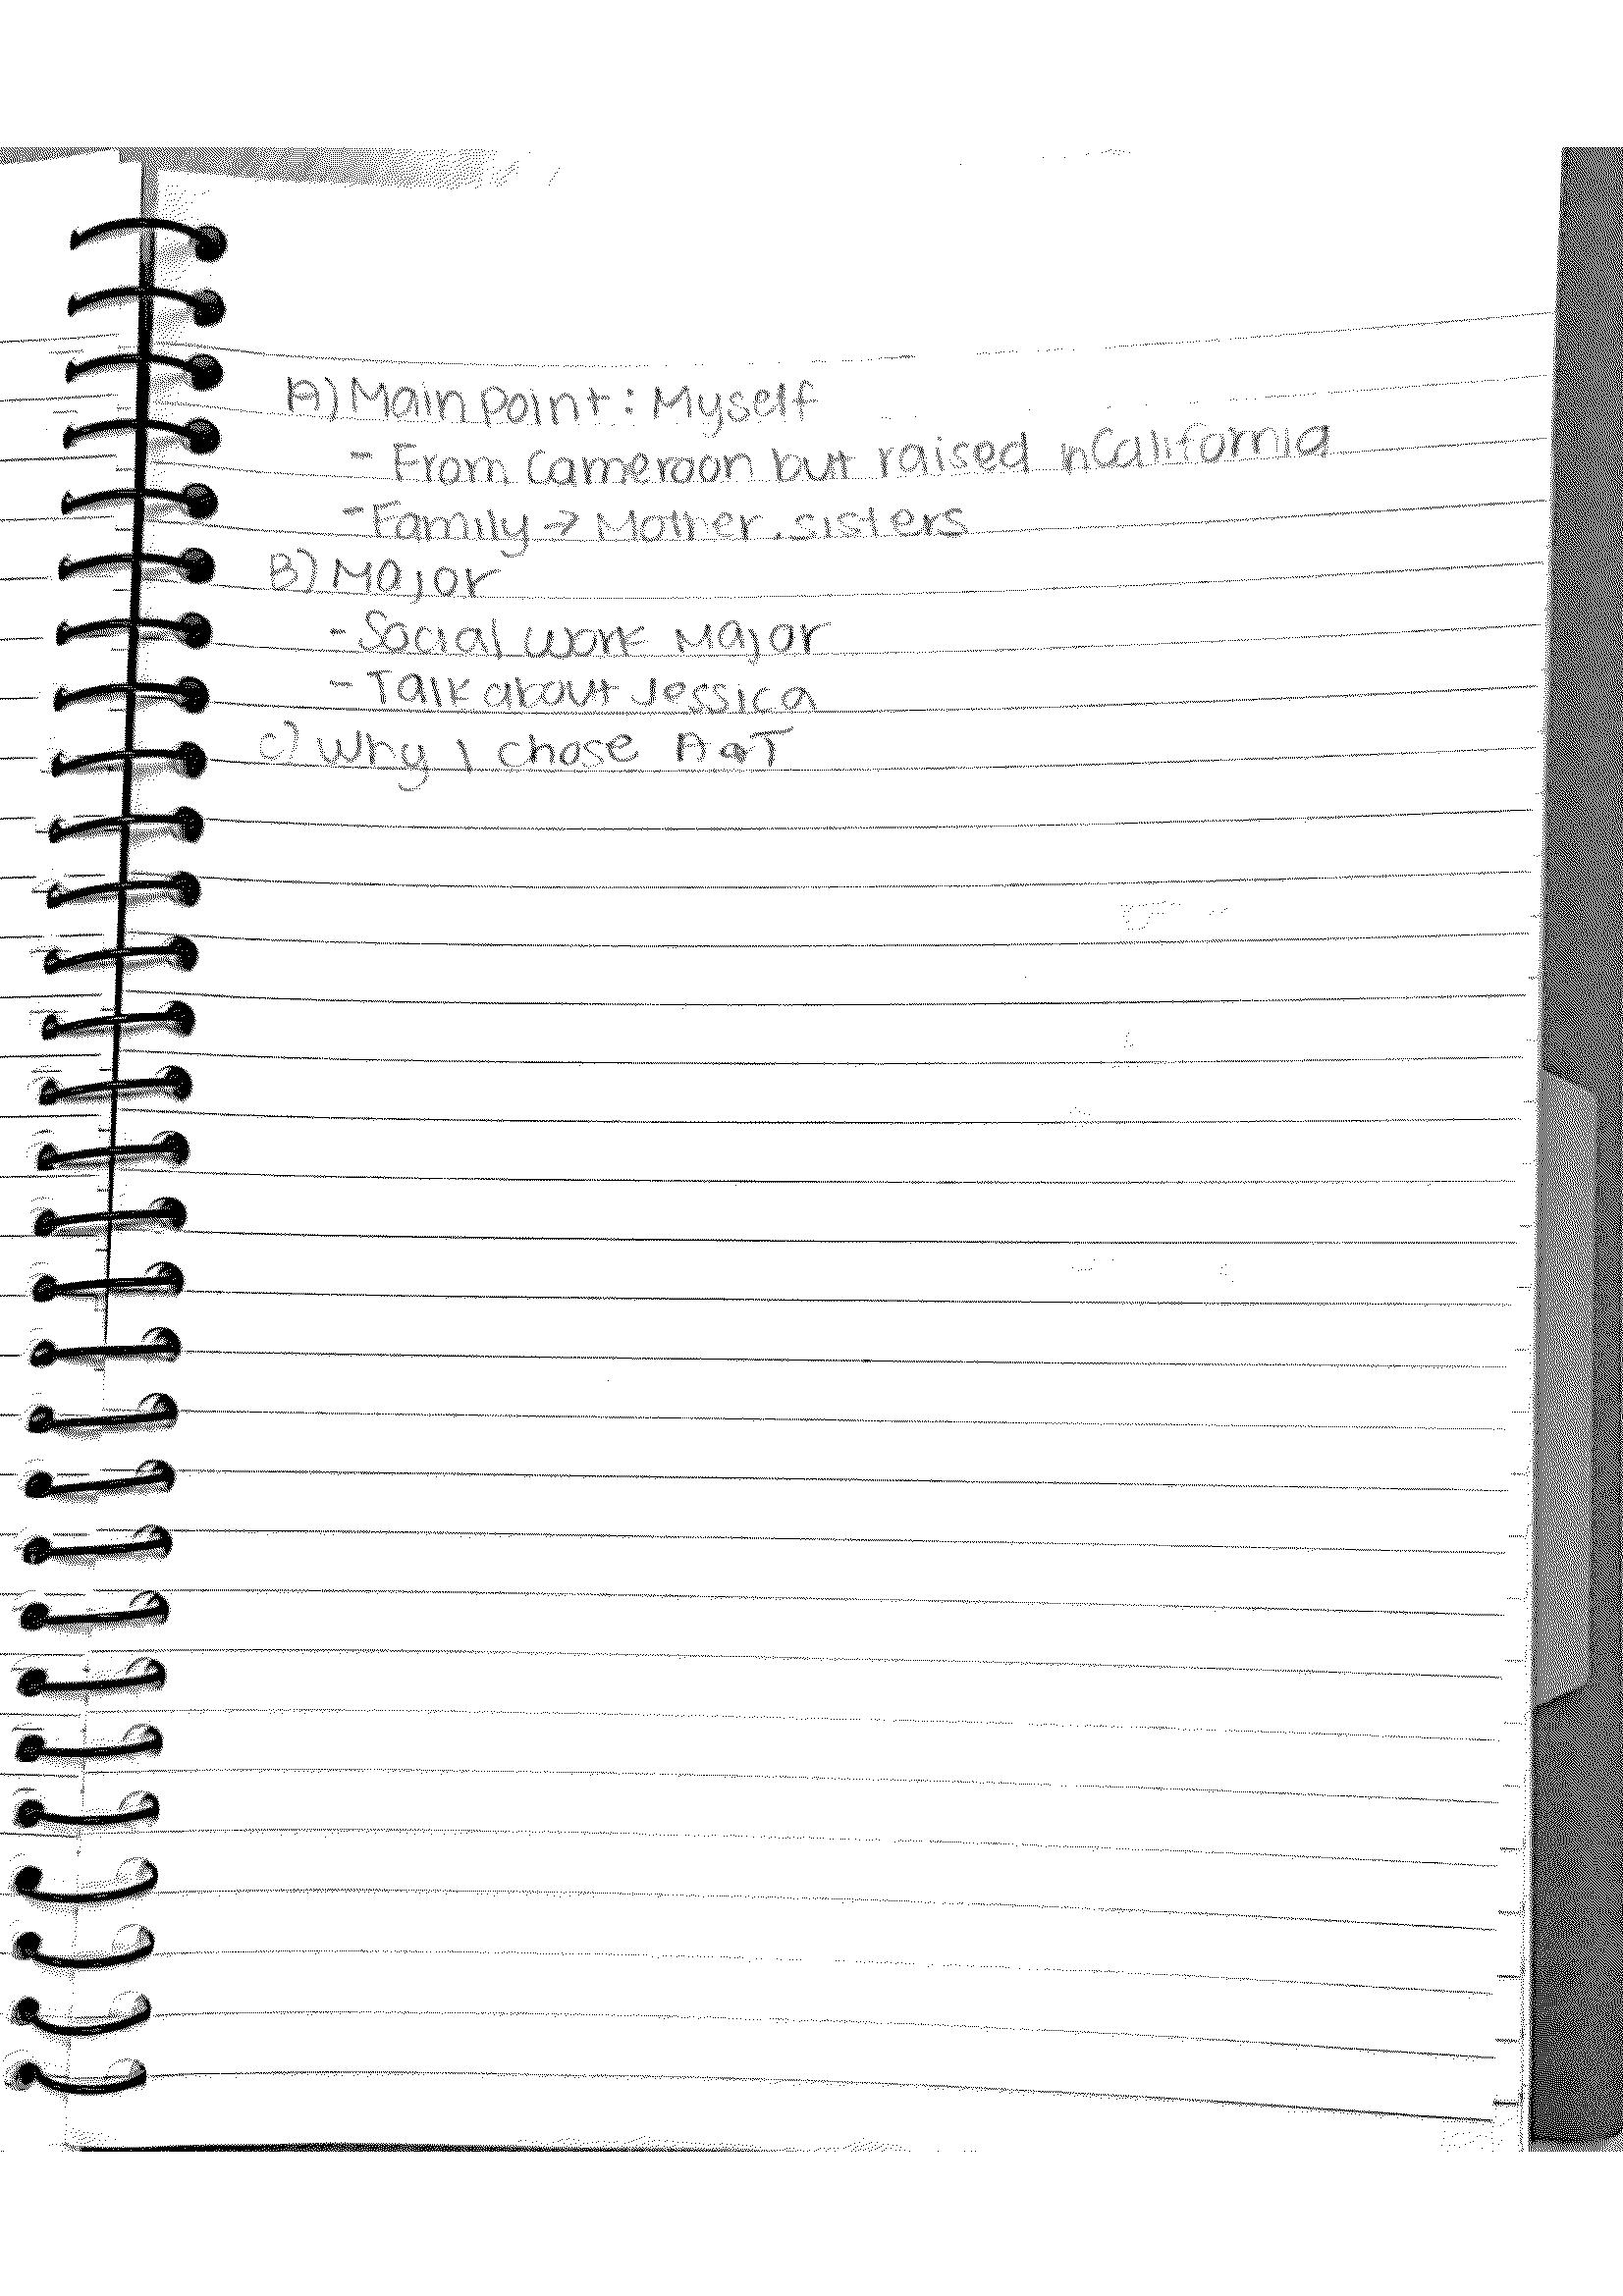 A) Main point: Myself
- From Cameroon but raised in California
- Family → Mother, sisters
B) Major
- Social work Major
- Talk about Jessica
C) Why I chose A&T